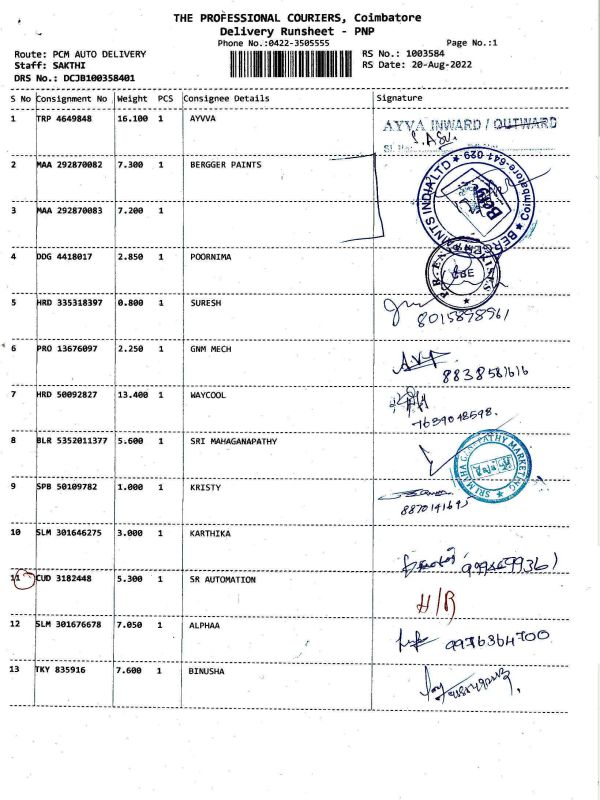 THE PROFESSIONAL COURIERS, Coimbatore
Delivery Runsheet - PNP
Phone No.:0422-3505555
Page No.:1
Route: PCM AUTO DELIVERY
RS No.: 1003584
Staff: SAKTHI
RS Date: 20-Aug-2022
DRS No.: DCJB100358401
S No Consignment No Weight PCS Consignee Details Signature
1 TRP 4649848 16.100 1 AYVVA
AYVA INWARD / OUTWARD
2 MAA 292870082 7.300 1 BERGGER PAINTS
BERGER PAINTS INDIA LTD ★ Coimbatore-641 029 ★
3 MAA 292870083 7.200 1
4 DDG 4418017 2.850 1 POORNIMA
CBE
5 HRD 335318397 0.800 1 SURESH
8015898961
6 PRO 13676097 2.250 1 GNM MECH
8838581616
7 HRD 50092827 13.400 1 WAYCOOL
7639048598.
8 BLR 5352011377 5.600 1 SRI MAHAGANAPATHY
★ SRI MAHAGANAPATHY MARKETING
9 SPB 50109782 1.000 1 KRISTY
10 SLM 301646275 3.000 1 KARTHIKA
11 CUD 3182448 5.300 1 SR AUTOMATION
H/R
12 SLM 301676678 7.050 1 ALPHAA
9976364700
13 TKY 835916 7.600 1 BINUSHA